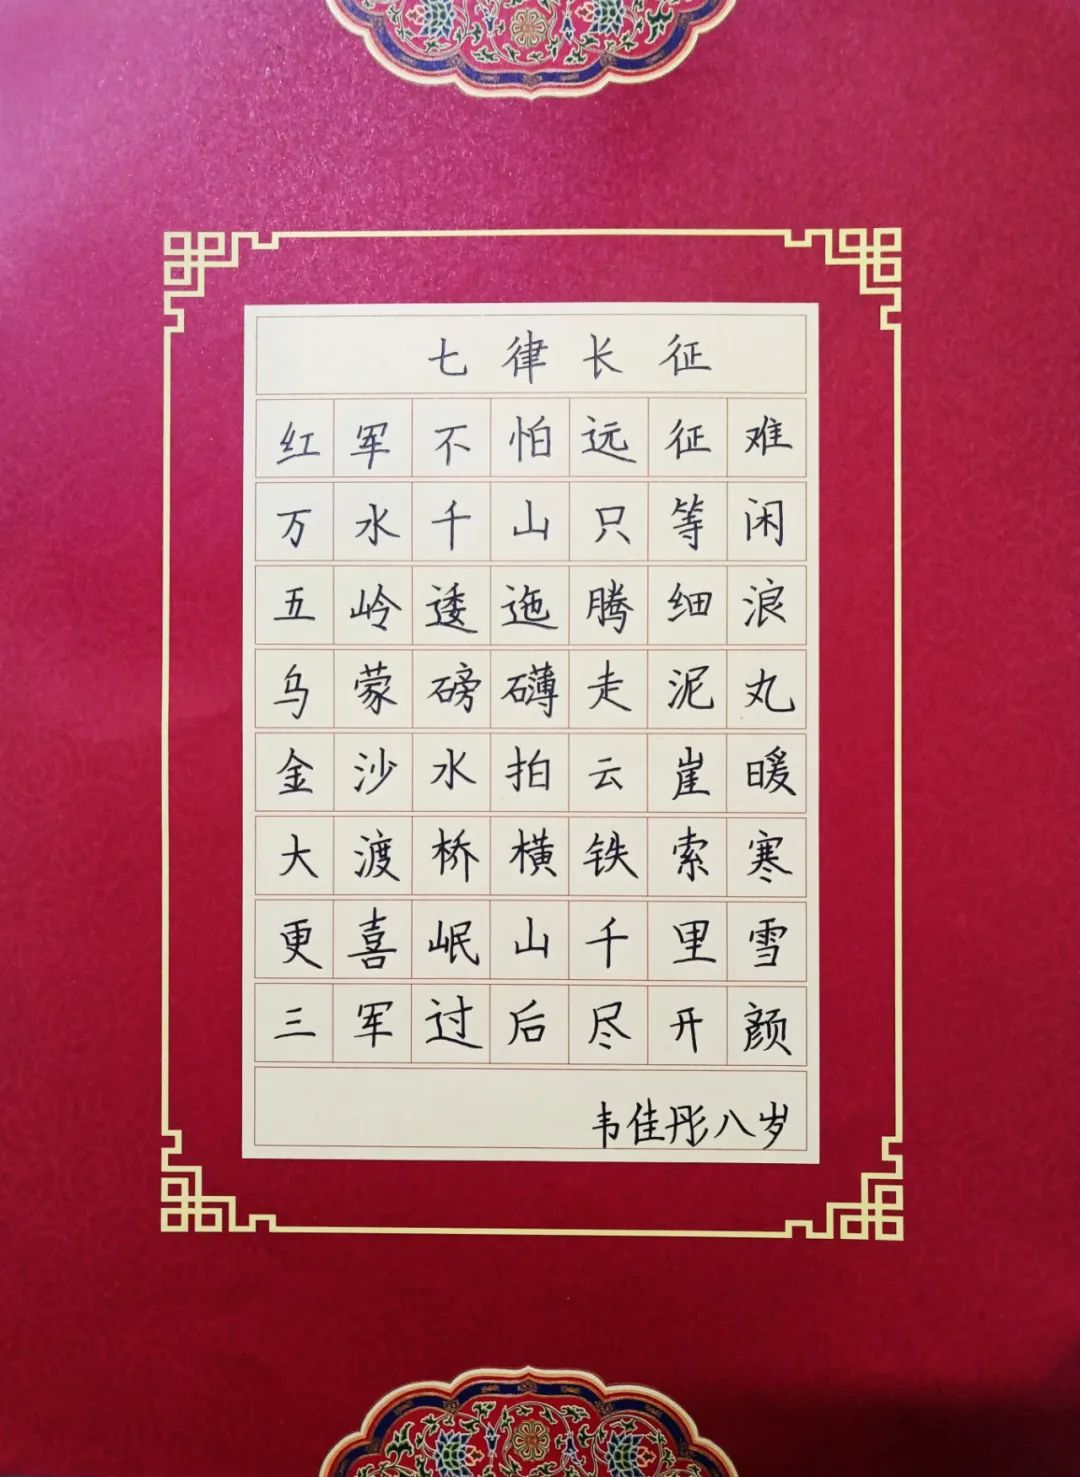 七律长征
红军不怕远征难
万水千山只等闲
五岭逶迤腾细浪
乌蒙磅礴走泥丸
金沙水拍云崖暖
大渡桥横铁索寒
更喜岷山千里雪
三军过后尽开颜
韦佳彤八岁